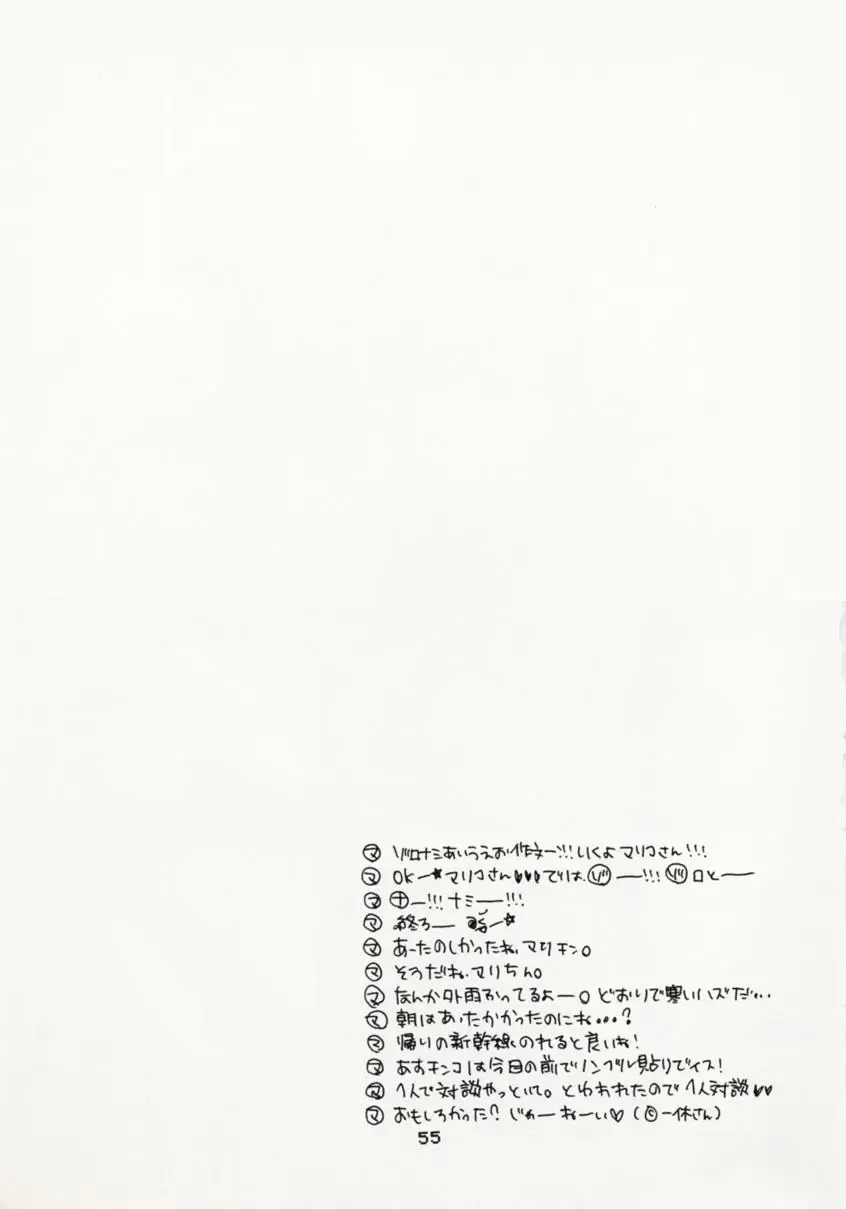 ㋮ ゾロナミあいうえお作文ー!!! いくよマリコさん!!!
㋮ OKー★マリコさん♥♥♥では、ゾー!!! ゾロとー
㋮ ナー!!! ナミー!!!
㋮ 終ろー ★
㋮ あーたのしかったね、マリチン。
㋮ そうだね、マリちん。
㋮ なんか外雨ふってるよー。どおりで寒いハズだ…
㋮ 朝はあったかかったのにね…?
㋮ 帰りの新幹線のれると良いね!
㋮ あすチンコは今日の前でノンブル貼りでイス!
㋮ 1人で対談やっといて。といわれたので1人対談♥♥
㋮ おもしろかった? じゃーねーい♡(©一休さん)
55